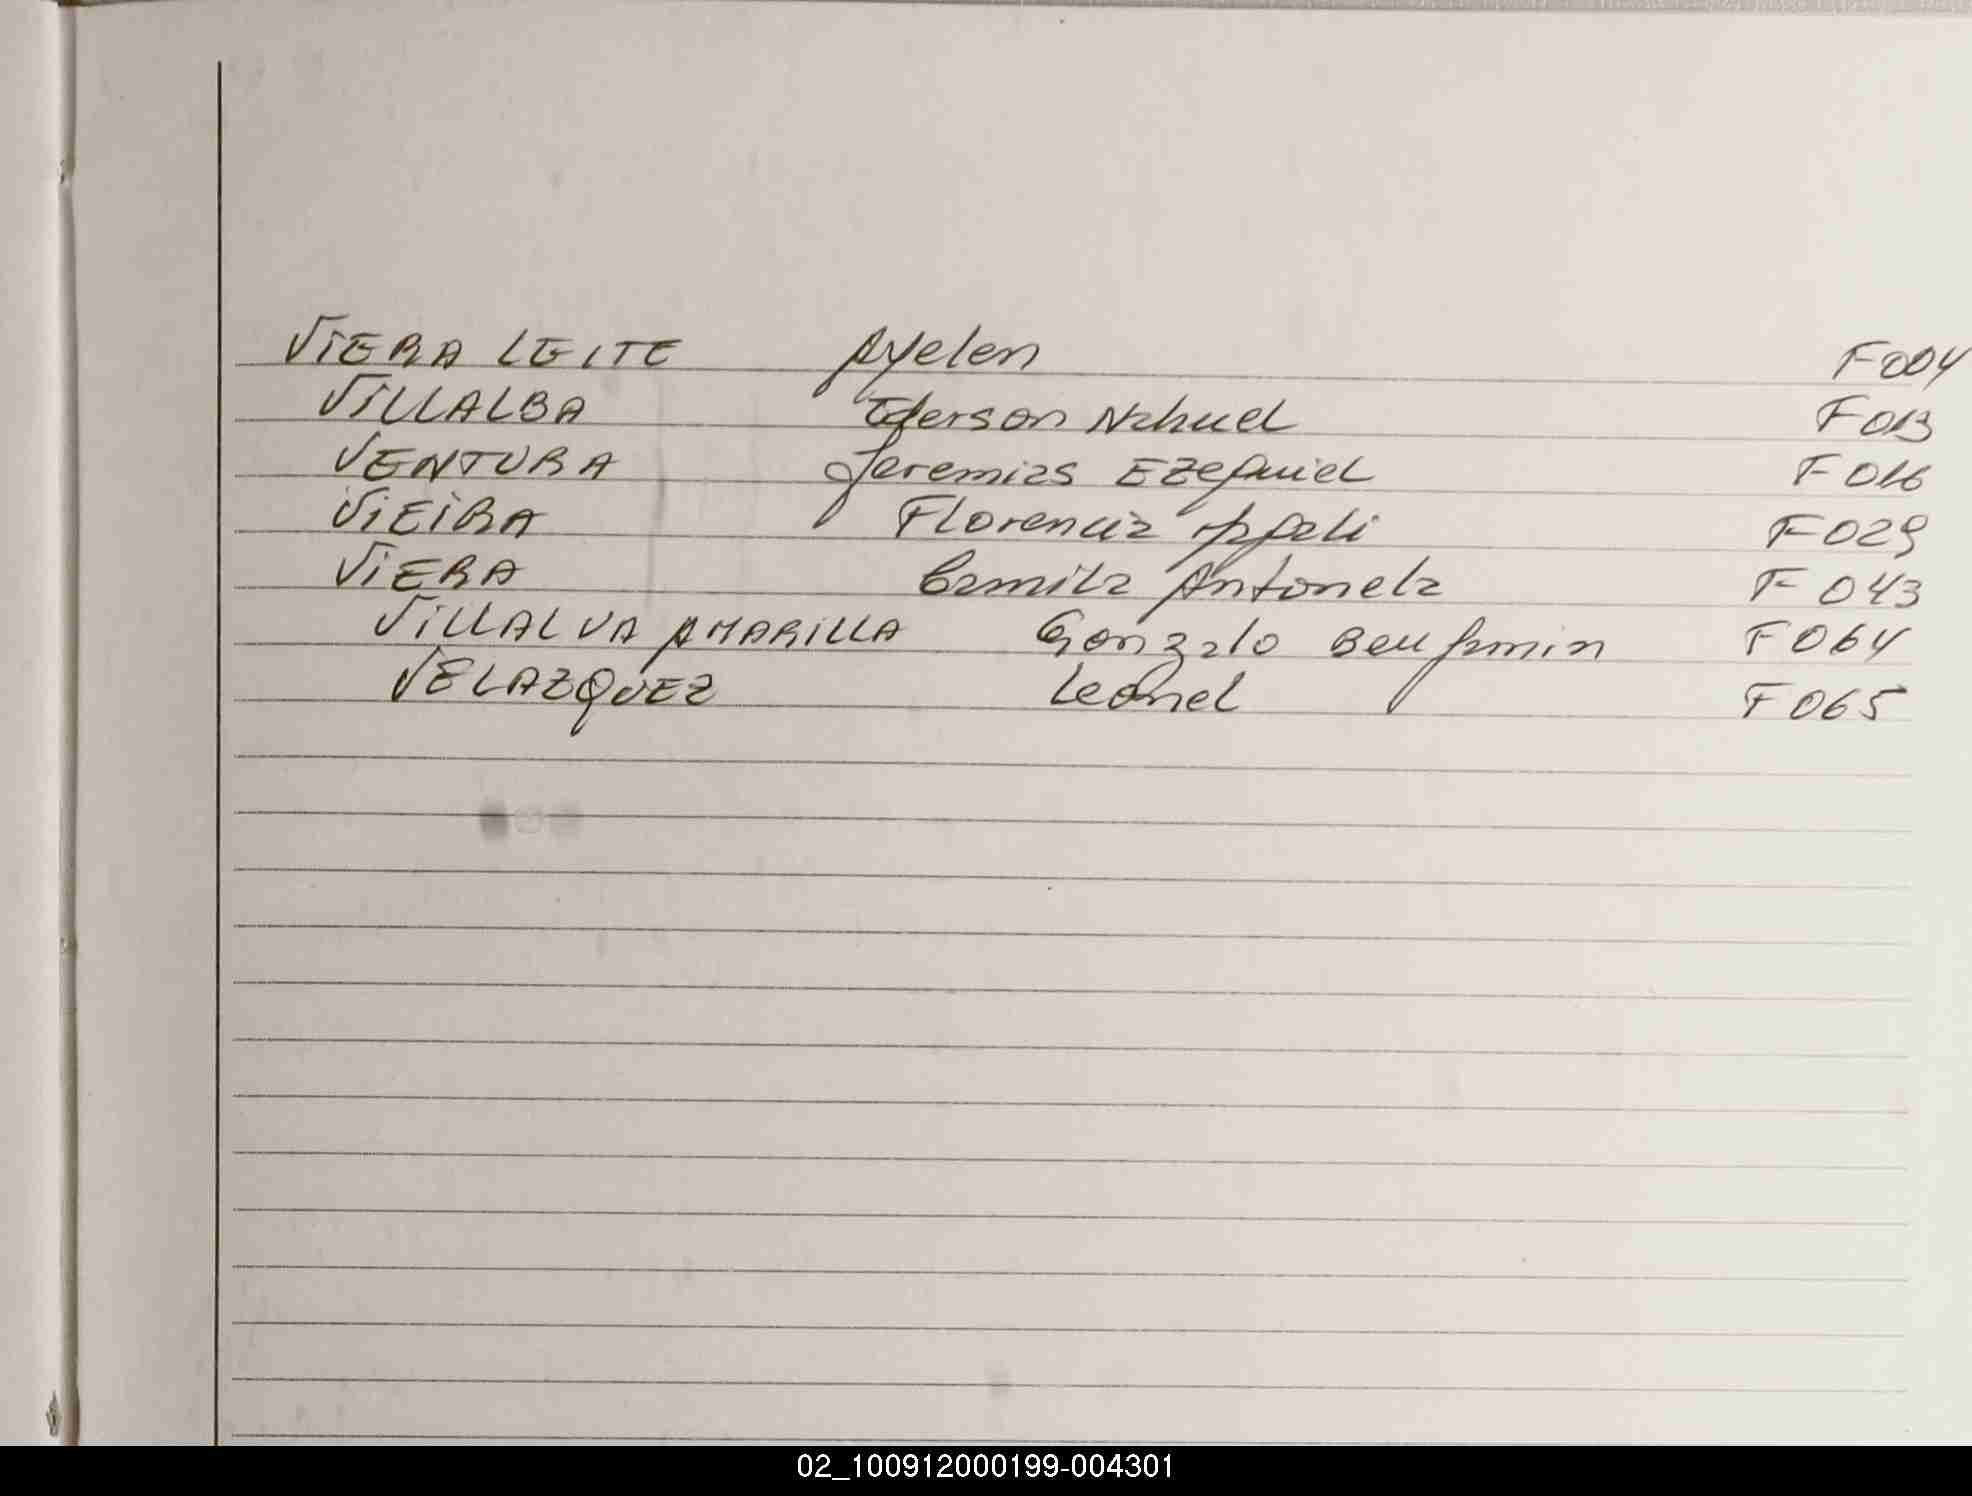 VIERA LEITE Ayelen F004
VILLALBA Ederson Nahuel F013
VENTURA Jeremias Ezequiel F016
VIEIRA Florencia F029
VIERA Camila Antonela F043
VILLALVA AMARILLA Gonzalo Benjamin F064
VELAZQUEZ Leonel F065
02_100912000199-004301